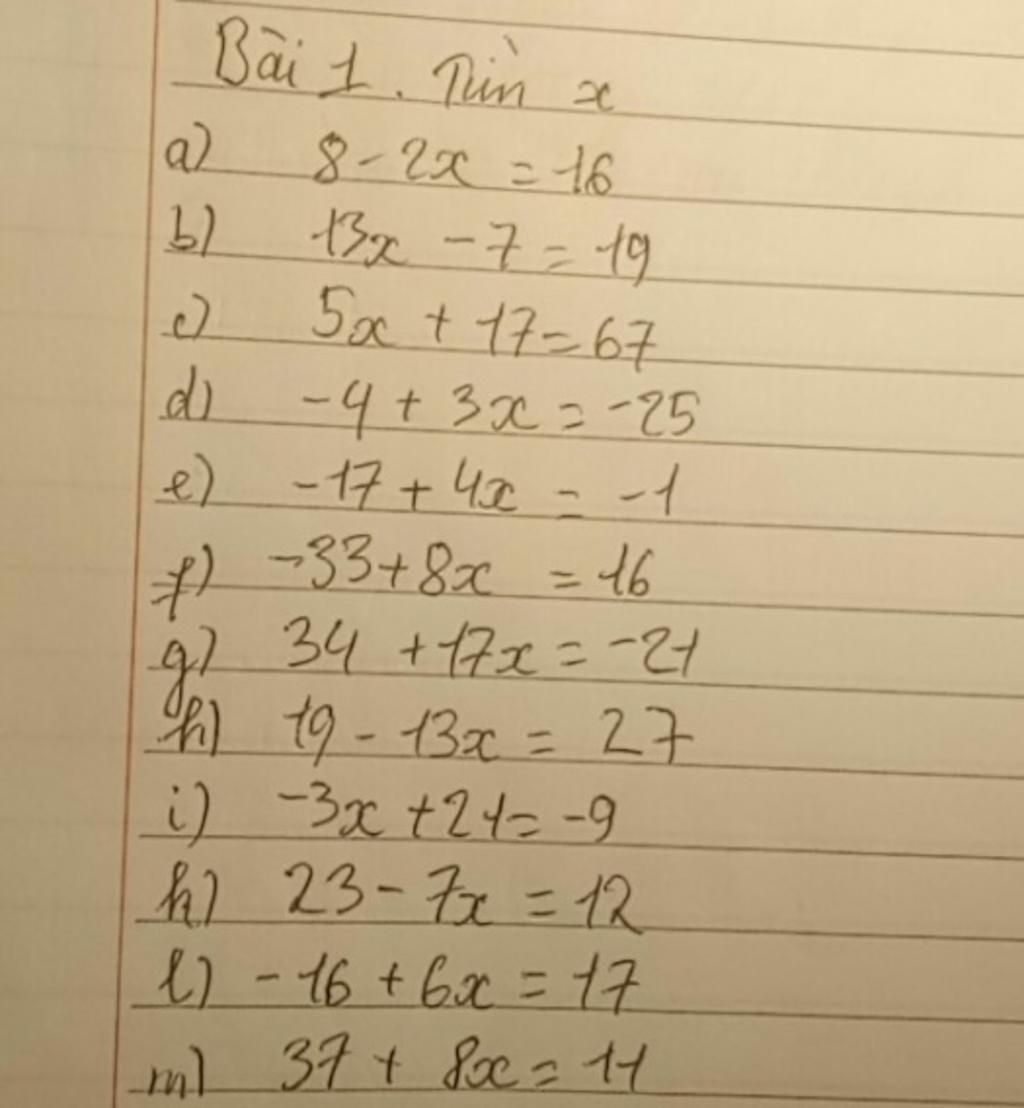 Bài 1. Tìm x
a) 8 - 2x = 16
b) 13x - 7 = 19
c) 5x + 17 = 67
d) -4 + 3x = -25
e) -17 + 4x = -1
f) -33 + 8x = 16
g) 34 + 17x = -21
h) 19 - 13x = 27
i) -3x + 21 = -9
k) 23 - 7x = 12
l) -16 + 6x = 17
m) 37 + 8x = 11